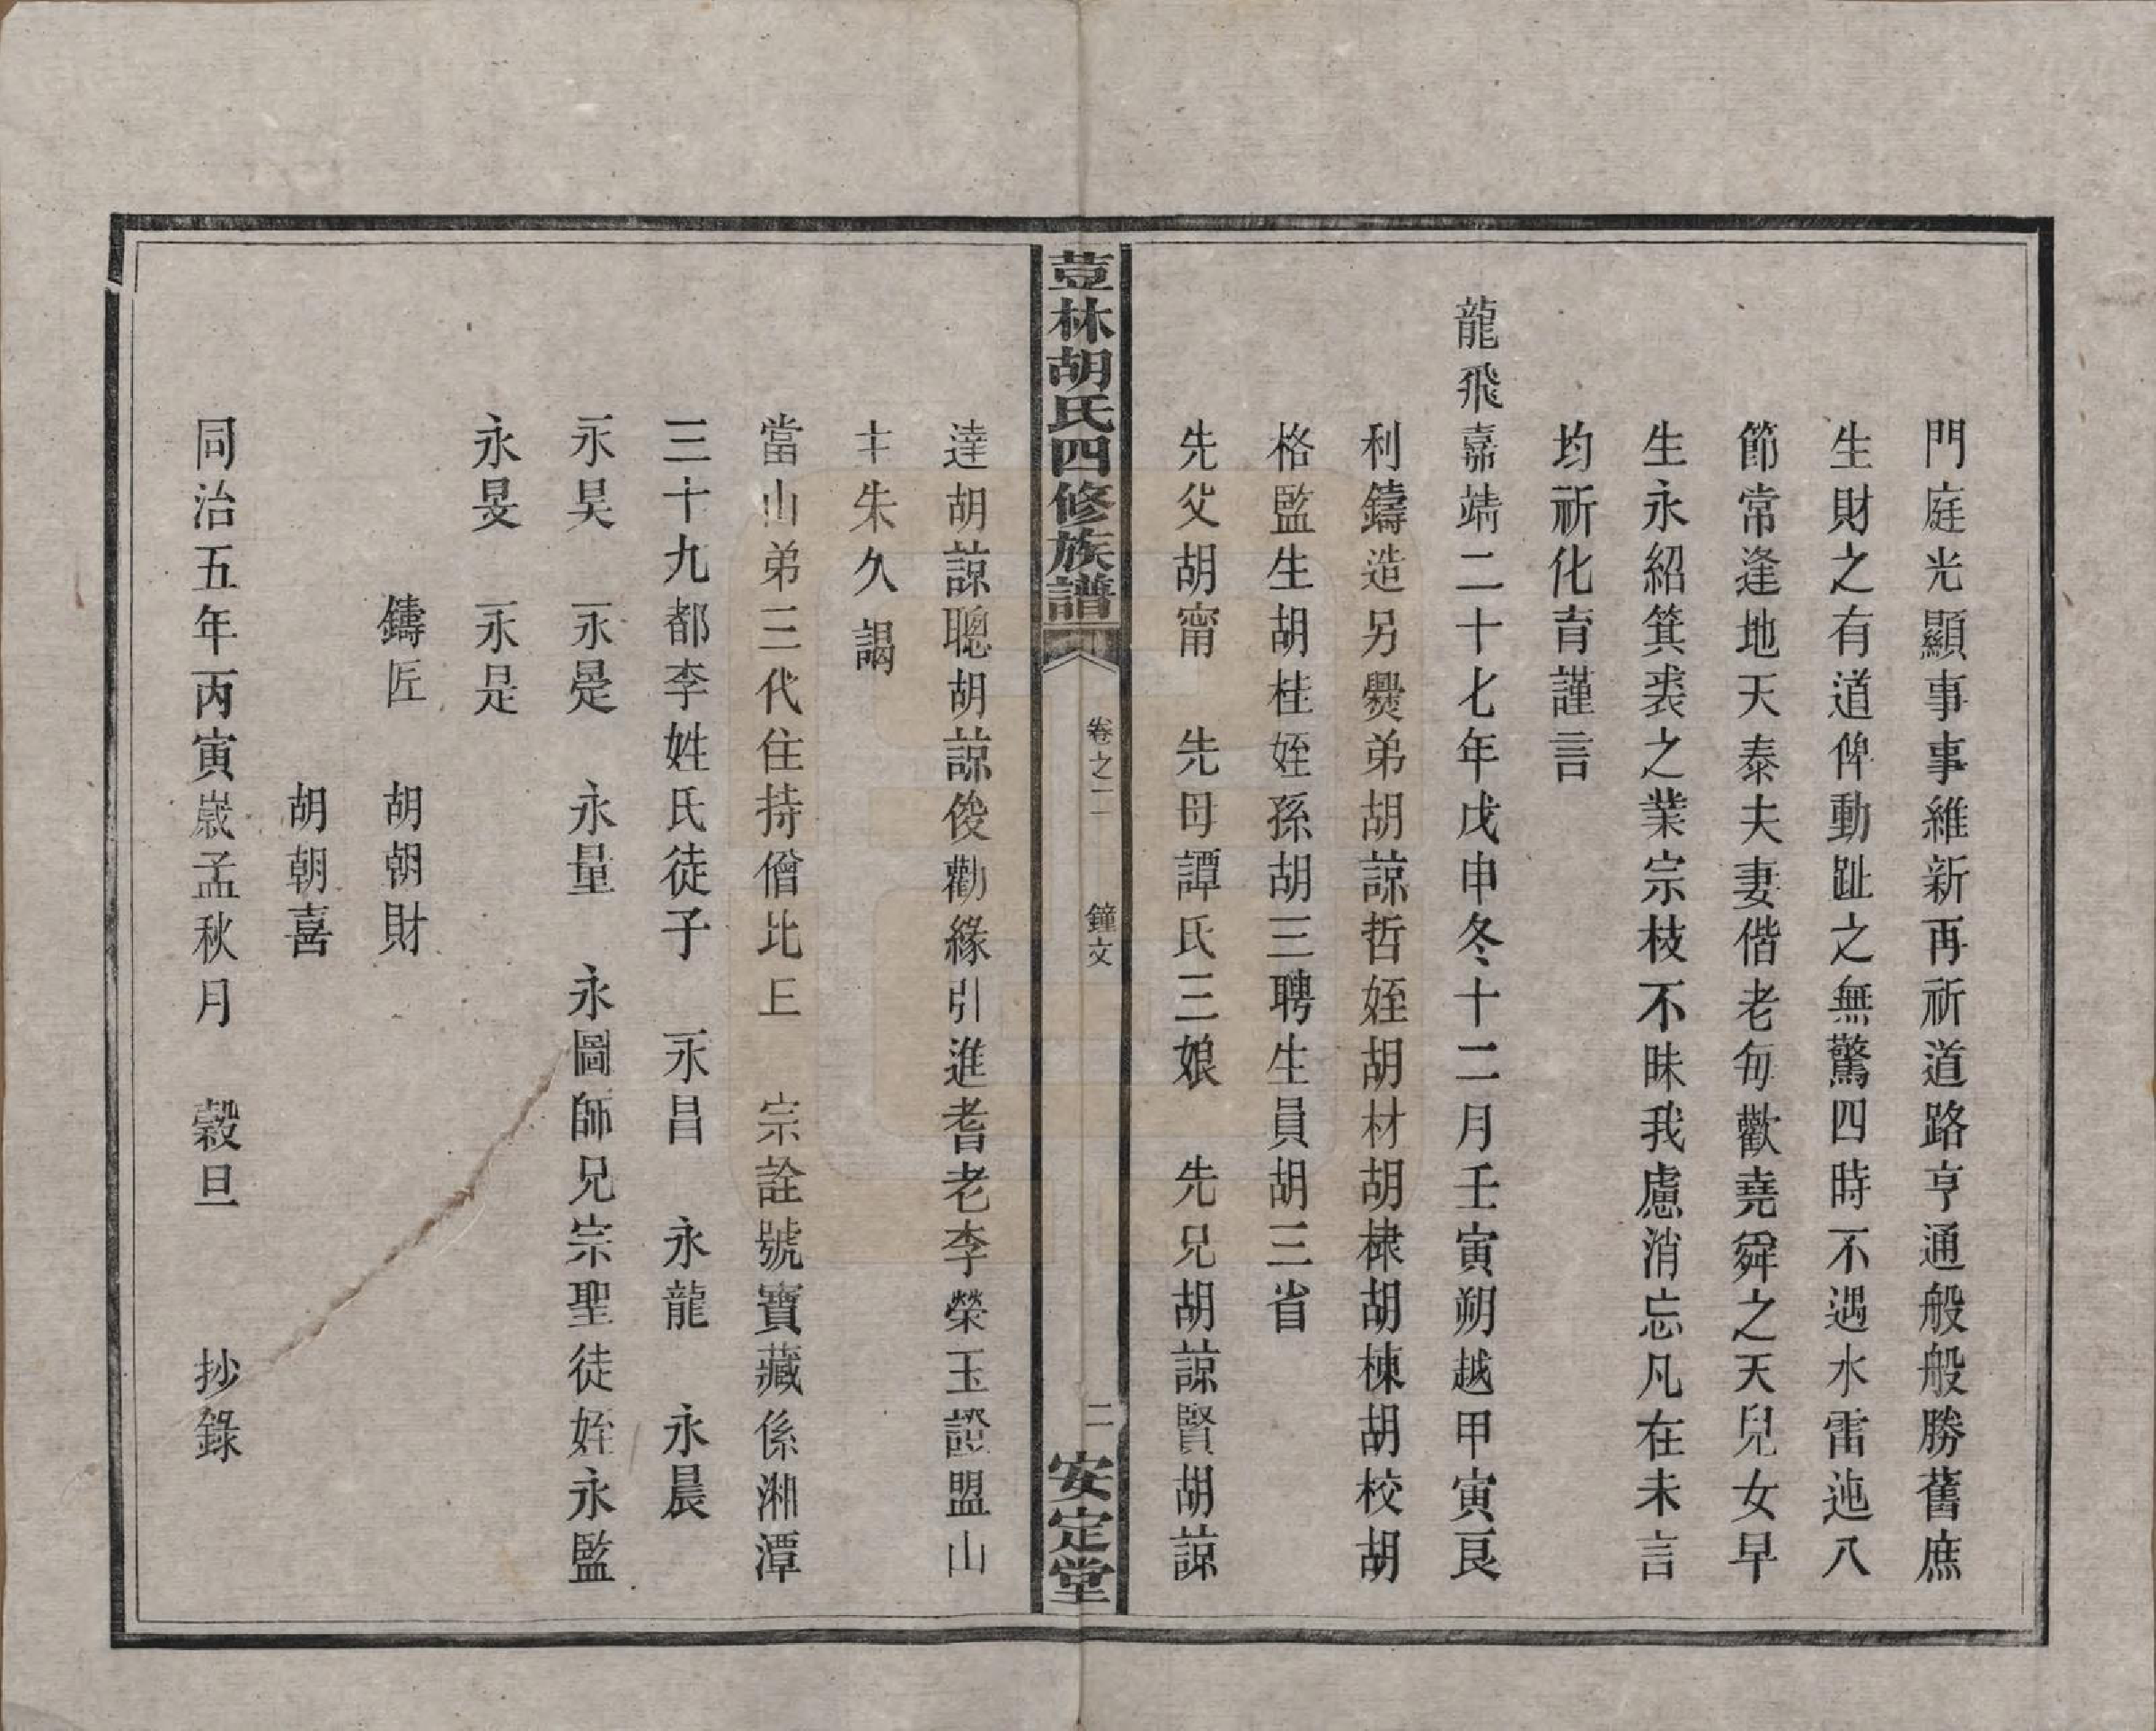 門庭光顯事事維新再祈道路亨通般般勝舊庶
生財之有道俾動趾之無驚四時不遇水雷迆八
節常逢地天泰夫妻偕老每歡堯舜之天兒女早
生永紹箕裘之業宗枝不昧我慮消忘凡在未言
均祈化育謹言
龍飛嘉靖二十七年戊申冬十二月壬寅朔越甲寅良
利鑄造另爨弟胡諒哲姪胡材胡棣胡棟胡校胡
格監生胡桂姪孫胡三聘生員胡三省
先父胡甯　先母譚氏三娘　先兄胡諒賢胡諒
荳林胡氏四修族譜
卷之二
鐘文
二
安定堂
達胡諒聰胡諒俊勸緣引進耆老李榮玉證盟山
主朱久謁
當山弟三代住持僧比丘　宗詮號寶藏係湘潭
三十九都李姓氏徒子　永昌　永龍　永晨
永昊　永晸　永量　永圖師兄宗聖徒姪永監
永旻　永是
鑄匠　胡朝財
胡朝喜
同治五年丙寅歲孟秋月　穀旦　抄錄